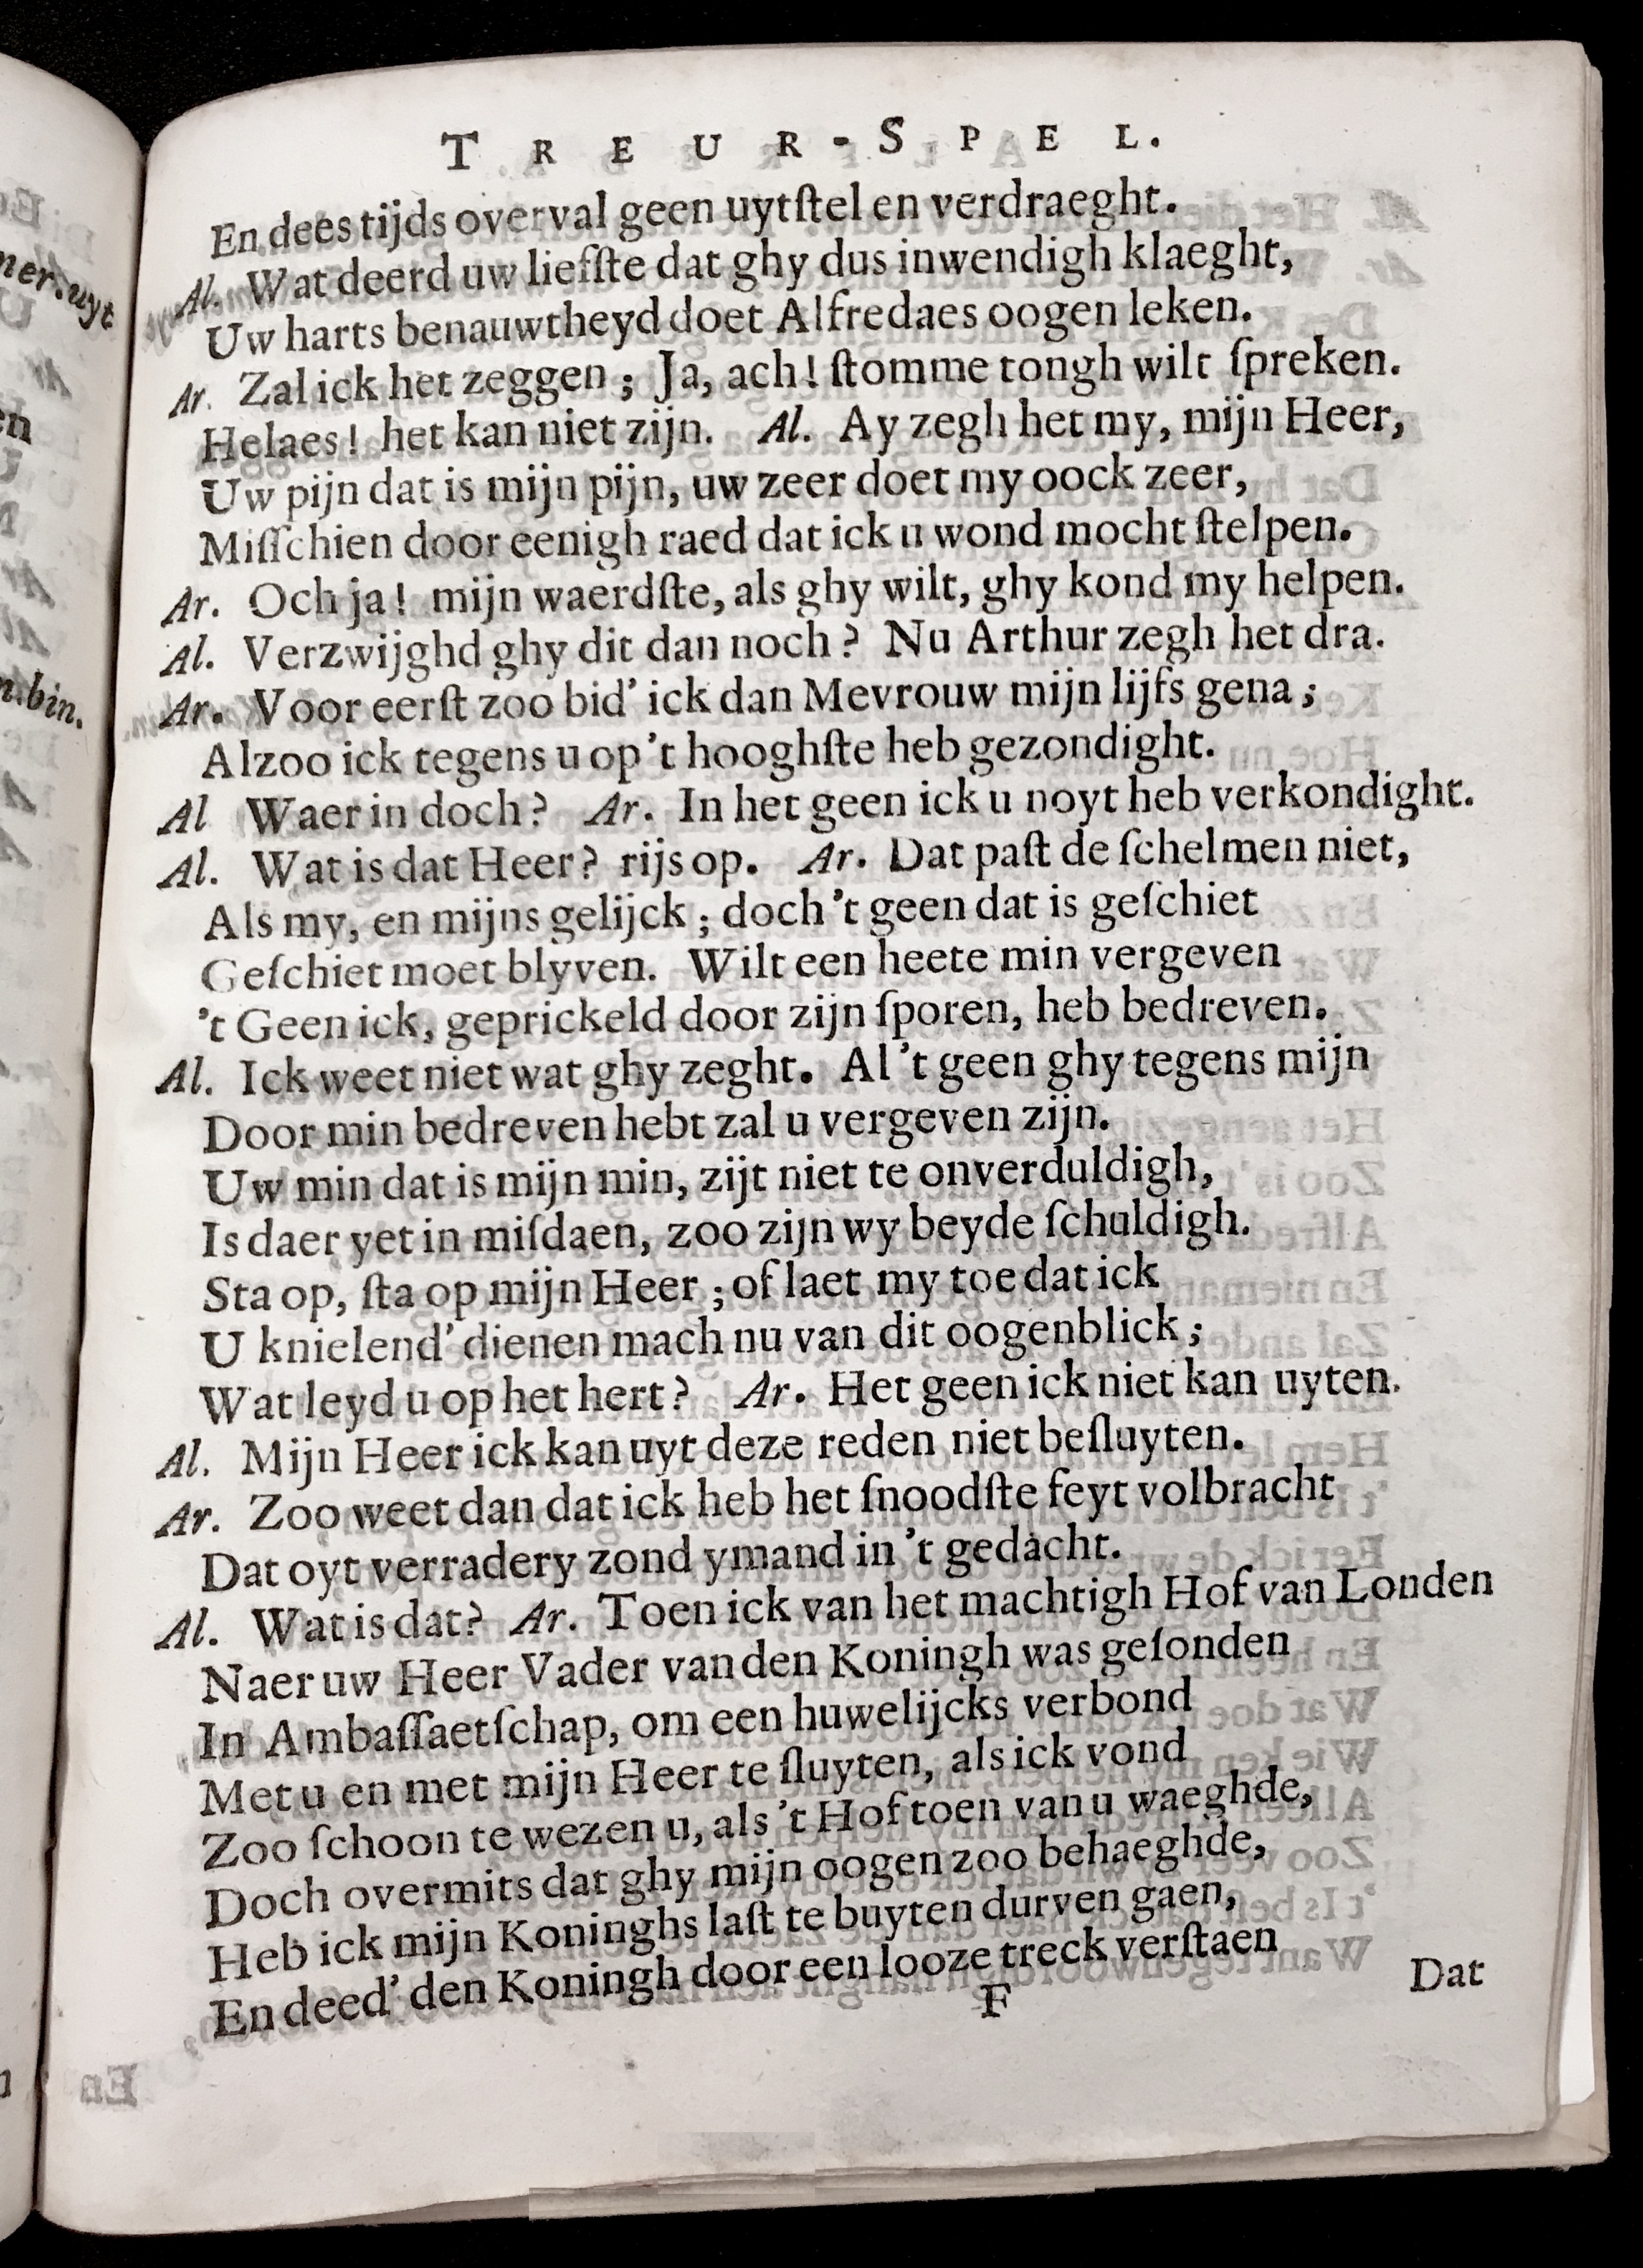 TREUR-SPEL.
En dees tijds overval geen uytſtel en verdraeght.
Al. Wat deerd uw liefſte dat ghy dus inwendigh klaeght,
Uw harts benauwtheyd doet Alfredaes oogen leken.
Ar. Zal ick het zeggen; Ja, ach! ſtomme tongh wilt ſpreken.
Helaes! het kan niet zijn. Al. Ay zegh het my, mijn Heer,
Uw pijn dat is mijn pijn, uw zeer doet my oock zeer,
Miſſchien door eenigh raed dat ick u wond mocht ſtelpen.
Ar. Och ja! mijn waerdſte, als ghy wilt, ghy kond my helpen.
Al. Verzwijghd ghy dit dan noch? Nu Arthur zegh het dra.
Ar. Voor eerſt zoo bid' ick dan Mevrouw mijn lijfs gena;
Alzoo ick tegens u op 't hooghſte heb gezondight.
Al Waer in doch? Ar. In het geen ick u noyt heb verkondight.
Al. Wat is dat Heer? rijs op. Ar. Dat paſt de ſchelmen niet,
Als my, en mijns gelijck; doch 't geen dat is geſchiet
Geſchiet moet blyven. Wilt een heete min vergeven
't Geen ick, geprickeld door zijn ſporen, heb bedreven.
Al. Ick weet niet wat ghy zeght. Al 't geen ghy tegens mijn
Door min bedreven hebt zal u vergeven zijn.
Uw min dat is mijn min, zijt niet te onverduldigh,
Is daer yet in miſdaen, zoo zijn wy beyde ſchuldigh.
Sta op, ſta op mijn Heer; of laet my toe dat ick
U knielend' dienen mach nu van dit oogenblick;
Wat leyd u op het hert? Ar. Het geen ick niet kan uyten.
Al. Mijn Heer ick kan uyt deze reden niet beſluyten.
Ar. Zoo weet dan dat ick heb het ſnoodſte feyt volbracht
Dat oyt verradery zond ymand in 't gedacht.
Al. Wat is dat? Ar. Toen ick van het machtigh Hof van Londen
Naer uw Heer Vader van den Koningh was geſonden
In Ambaſſaetſchap, om een huwelijcks verbond
Met u en met mijn Heer te ſluyten, als ick vond
Zoo ſchoon te wezen u, als 't Hof toen van u waeghde,
Doch overmits dat ghy mijn oogen zoo behaeghde,
Heb ick mijn Koninghs laſt te buyten durven gaen,
En deed' den Koningh door een looze treck verſtaen
F
Dat